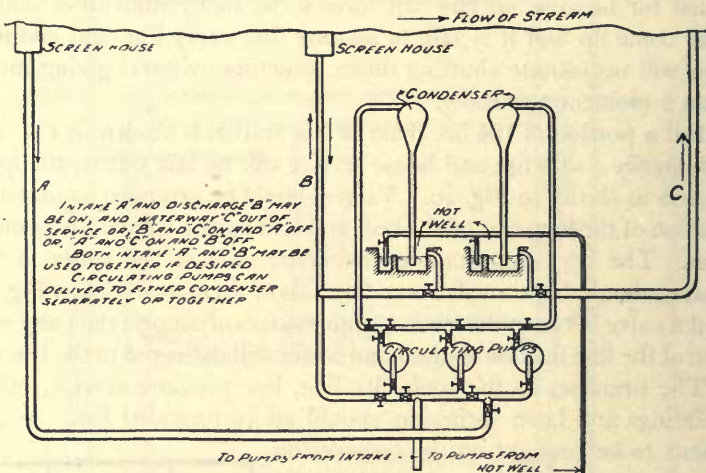 st for
come
will necessitate shutting down
a portion of the
FLOW OF STREAM
SCREEN HOUSE
SCREEN HOUSE
CONDENSER
A
B
C
INTAKE "A" AND DISCHARGE "B" MAY
BE ON, AND WATERWAY "C" OUT OF
SERVICE OR, "B" AND "C" ON AND "A" OFF
OR, "A" AND "C" ON AND "B" OFF
BOTH INTAKE "A" AND "B" MAY BE
USED TOGETHER IF DESIRED
CIRCULATING PUMPS CAN
DELIVER TO EITHER CONDENSER
SEPARATELY OR TOGETHER
HOT
WELL
CIRCULATING PUMPS
TO PUMPS FROM INTAKE
TO PUMPS FROM
HOT WELL